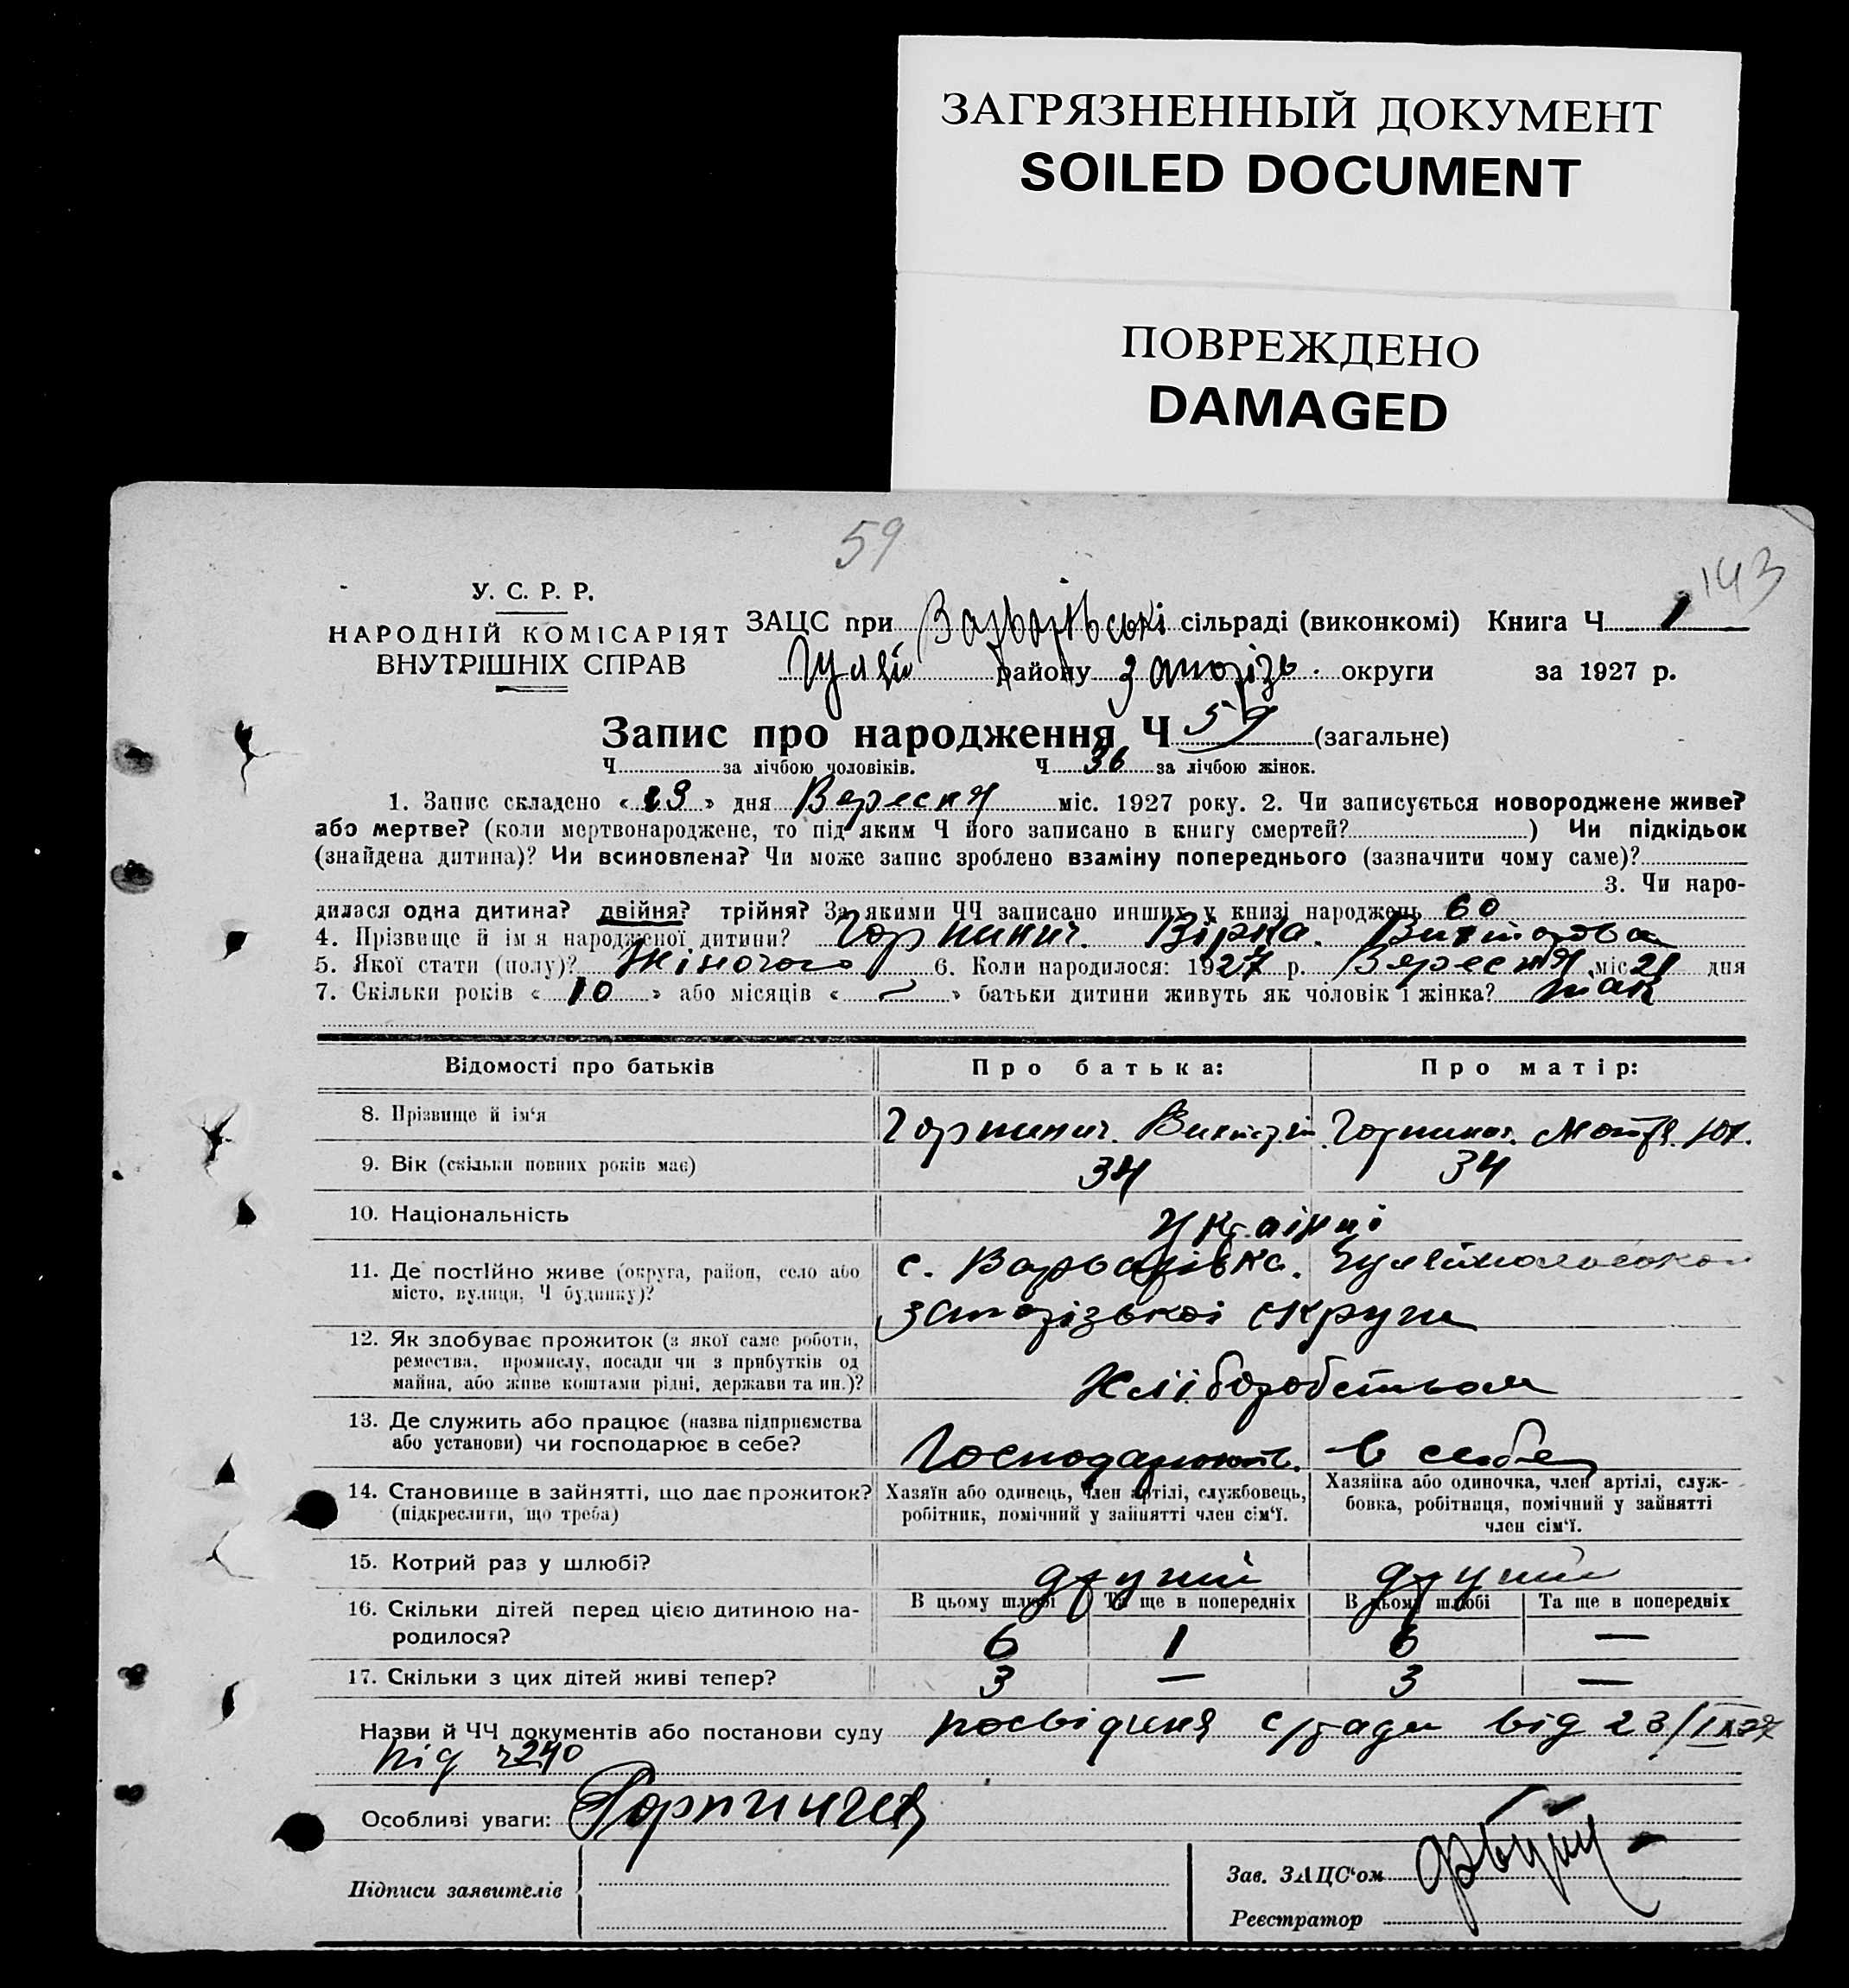 ЗАГРЯЗНЕННЫЙ ДОКУМЕНТ
SOILED DOCUMENT
ПОВРЕЖДЕНО
DAMAGED
59
143
У. С. Р. Р.
НАРОДНІЙ КОМІСАРІЯТ
ВНУТРІШНІХ СПРАВ
ЗАЦС при Варварівські сільраді (виконкомі) Книга Ч 1
Гуляй району Запорізь. округи за 1927 р.
Запис про народження Ч 59 (загальне)
Ч за лічбою чоловіків. Ч 36 за лічбою жінок.
1. Запис складено « 23 » дня Вересня міс. 1927 року. 2. Чи записується новороджене живе?
або мертве? (коли мертвонароджене, то під яким Ч його записано в книгу смертей? ) Чи підкідьок
(знайдена дитина)? Чи всиновлена? Чи може запис зроблено взаміну попереднього (зазначити чому саме)?
3. Чи наро-
дилася одна дитина? двійня? трійня? За якими ЧЧ записано инших у книзі народжень 60
4. Прізвище й ім я народженої дитини? Горпинич. Вірка.
5. Якої стати (полу)? Жіночого 6. Коли народилося: 1927 р. Вересня міс 21 дня
7. Скільки років « 10 » або місяців « — » батьки дитини живуть як чоловік і жінка? так
Відомості про батьків Про батька: Про матір:
8. Прізвище й ім‘я Горпинич. Горпинич.
9. Вік (скільки повних років має) 34 34
10. Національність Українці
11. Де постІйно живе (округа, район, село або
місто, вулиця, Ч будинку)?
с. Варварівка.
запорізької округи
12. Як здобуває прожиток (з якої саме роботи,
ремества, промислу, посади чи з прибутків од
майна, або живе коштами рідні, держави та ин.)?
Хліборобством
13. Де служить або працює (назва підприємства
або установи) чи господарює в себе?
Господарюють. в себе
14. Становище в зайнятті, що дає прожиток?
(підкреслити, що треба)
Хазяїн або одинець, член артілі, службовець,
робітник, помічний у зайнятті член сім‘ї.
Хазяйка або одиночка, член артілі, служ-
бовка, робітниця, помічний у зайнятті
член сім‘ї.
15. Котрий раз у шлюбі? другий другий
16. Скільки дітей перед цією дитиною на-
родилося?
В цьому шлюбі Та ще в попередніх В цьому шлюбі Та ще в попередніх
6 1 6 —
17. Скільки з цих дітей живі тепер? 3 — 3 —
Назви й ЧЧ документів або постанови суду посвідчення с/ради від 23/IX 27
під ч240
Особливі уваги:
Підписи заявителів
Зав. ЗАЦС‘ом
Реєстратор